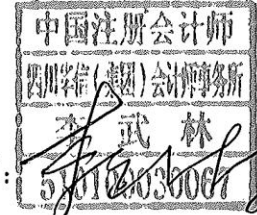 中国注册会计师
四川华信(集团)会计师事务所
李武林
510100030067